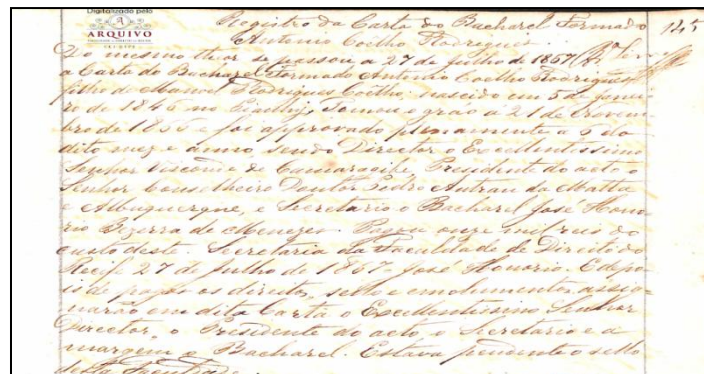 Digitalizado pelo
ARQUIVO
Registro da Carta do Bacharel Formado
145
Antonio Coelho Rodrigues.
Do mesmo theor se passou a 27 de Julho de 1867
a Carta do Bacharel Formado Antonio Coelho Rodrigues,
filho de Manoel Rodrigues Coelho, nascido em 5 de Janei-
ro de 1846 no Piauhy, Tomou o gráo á 21 de Novem-
bro de 1866 e foi approvado plenamente a 5 do
dito mez e anno, sendo Director o Excellentissimo
Senhor Visconde de Camaragibe, Presidente do acto o
Senhor Conselheiro Doutor Pedro Autran da Matta
e Albuquerque, e Secretario o Bacharel José Hono-
rio Bezerra de Menezes. Pagou onze mil reis do
custo deste. Secretaria da Faculdade de Direito do
Recife 27 de Julho de 1867. José Honorio. E depo-
is de pagos os direitos, sello e emolumentos assig-
narão em dita Carta o Excellentissimo Senhor
Director, o Presidente do acto, o Secretario e a
margem o Bacharel. Estava pendente o sello
desta Faculdade.